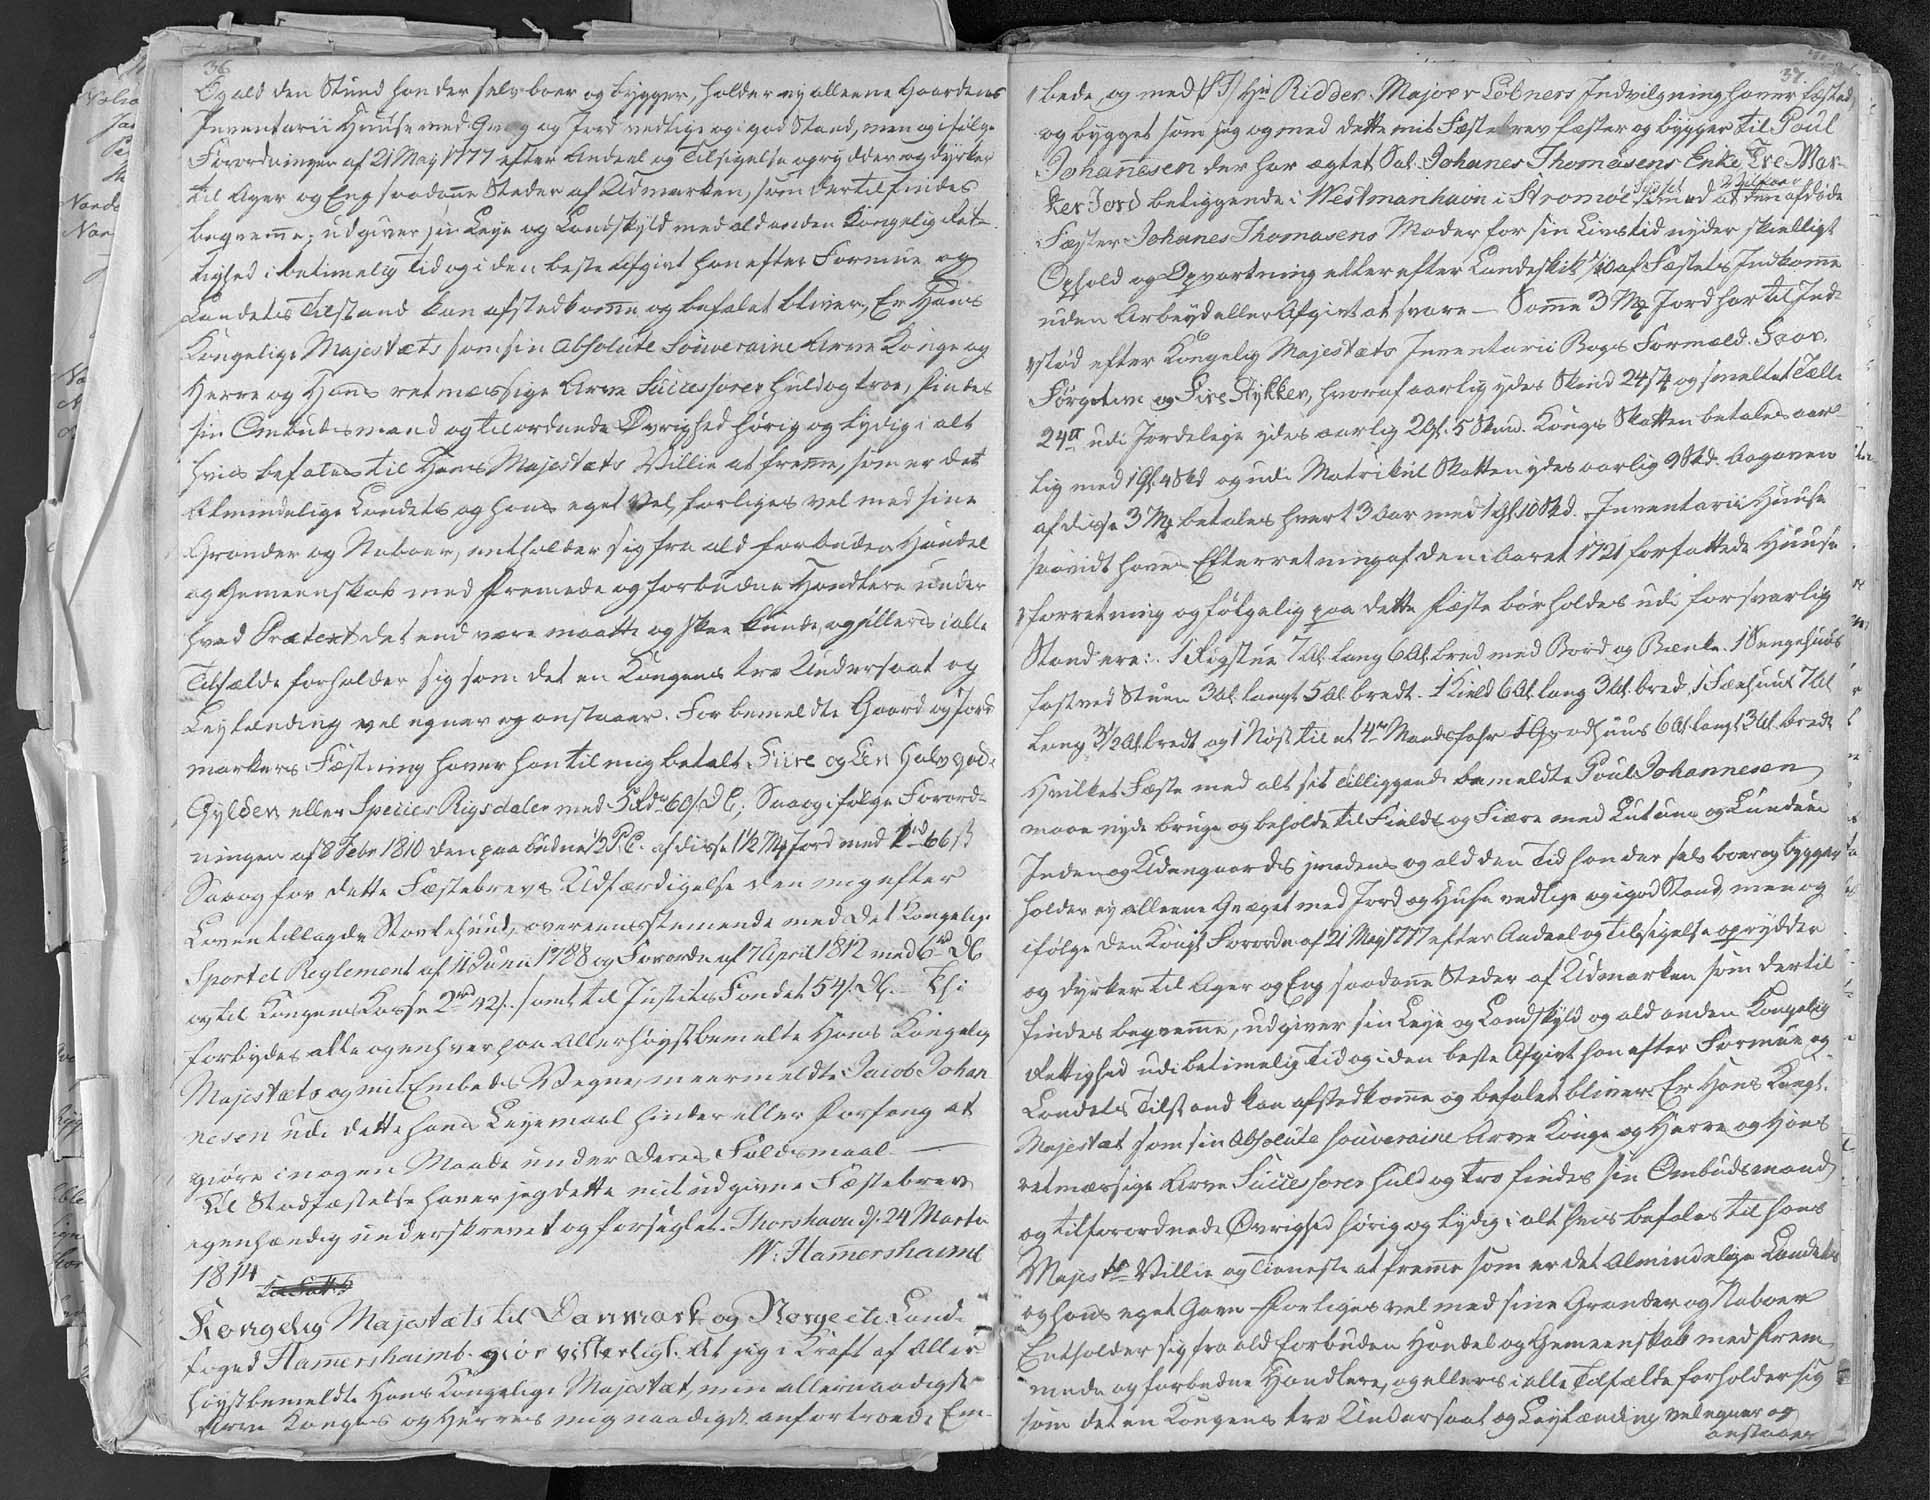 36
Og ald den Stund han der selv boer og bygger, holder ey alleene Gaardens
Inventarii Huuse med Qvæg og Jord vedlige og i god Stand, men og ifølge
Forordningen af 21 May 1777 efter Andeel og Tilsigelse oprydder og dyrker
til Ager og Eng saadanne Steder af Udmarken, som dertil findes
beqvemme, udgiver sin Leye og Landskyld med ald anden Kongelig Ret-
tighed i betimelig Tid og i den beste Afgivt han efter Formue og
Landets Tilstand kan afstedkomme og befalet bliver, Er Hans
Kongelige Majestæts som sin Absolute Souveraine Arve Konge og
Herre og Hans retmæssige Arve Successorer huld og troe, findes
sin Ombudsmand og tilordnede Øvrighed hørig og lydig i alt
hvis befales til Hans Majestæts Villie at fremme, som er det
Almindelige Landets og hans eget Vel, forliges vel med sine
Grander og Naboer, entholder sig fra ald forbuden Handel
og Gemeenskab med fremmede og forbudne Handlere under
hvad Prætext det end være maatte og skee kunde, og ellers i alle
Tilfælde forholder sig som det en Kongens troe Undersaat og
Leylænding vel egner og anstaaer. For bemeldte Gaard og Jord
markers Fæstning haver han til mig betalt Fiire og Een Halv gode
Gylden eller Species Rigsdaler med 5 Rdr 60 s. D C; Saa og ifølge Forord-
ningen af 8 Febr 1810 den paabudne ½ P.C. af disse 1½ Mk Jord med 1 rd 66 s
Saa og for dette Fæstebrevs Udfærdigelse den mig efter
Loven tillagde Stavkehund, overeensstemmende med det Kongelige
Sportel Reglement af 11 Junii 1788 og Forordn. af 7 April 1812 med 6 rd DC
og til Kongens Kasse 2 rd 42 s. samt til Justits Fondet 54 s. DC. Thi
forbydes alle og enhver paa Allerhøystbemelte Hans Kongelig
Majestæts og mit Embeds Vegne, meermeldte Jacob Johan
nesen udi dette hans Leyemaal hinder eller forfang at
giøre i nogen Maade under deres Faldsmaal
Til Stadfæstelse haver jeg dette mit udgivne Fæstebrev
egenhændig underskrevet og forseglet. Thorshavn d. 24 Martii
1814 W: Hamershaimb
Kongelig Majestæts til Danmark og Norge etc. Land-
foged Hamershaimb. giør vitterligt: At jeg i Kraft af Aller
høystbemeldte Hans Kongelige Majestæt, min allernaadigste
Arve Konges og Herres mig naadigst anfortroede Em-
37
bede, og med (S.T.) Hr Ridder Major v Løbners Indvilgning haver fæsted
og bygget som jeg og med dette mit Fæstebrev fæster og bygger til Poul
Johannesen der har ægtet Sal. Johanes Thomasens Enke Tre Mar-
ker Jord beliggende i Westmanhavn i Strømøe Syssel med Vilkaar at den afdøde
Fæster Johanes Thomasens Moder for sin Livstid nyder skielligt
Ophold og Opvartning eller efter Landeskik 1/10 af Fæstets Indkomme
uden Arbeyd eller Afgivt at svare – Somme 3 Mk Jord har til Ind-
stød efter Kongelig Majestæts Inventarii Bogs Formeld. Faar,
Førgetive og Fire Stykker, hvoraf aarlig ydes Skind 24 s 4 og smeltet Talle
24 tt udi Jordeleje ydes aarlig 2 Gl. 5 Skind. Kongs Skatten betales aar-
lig med 1 Gl. 4 Skd og udi Matrikul Skatten ydes aarlig 9 Skd. Aagaven
af disse 3 Mk betales hvert 3 Aar med 1 Gl. 10 Skd. Inventarii Huuse
saavidt haves Efterretning af den i Aaret 1721 forfattede Huuse
forretning og følgelig paa dette fæste bør holdes udi forsvarlig
Stand ere: 1 Røgstue 7 Al. lang 6 Al. bred med Bord og Bænke. 1 Sengehuus
fast ved Stuen 3 Al. langt 5 Al. bredt. 1 Kield 6 Al. lang 3 Al. bred, 1 Fæehuus 7 Al
lang 3½ Al. bredt og 1 Nøst til et 4re Mands fahr 1 Grødhuus 6 Al. langt 3 Al. bredt
Hvilket Fæste med alt sit tilliggende bemeldte Poul Johannesen
maae nyde bruge og beholde til Fields og Fiære med Lutum og Lundum
Inden og Udengaards jordens og ald den Tid han der selv boer og bygger
holder ey alleene Qvæget med Jord og Huse vedlige og i god Stand, men og
ifølge den Kongl. Forordn. af 21 May 1777 efter Andeel og Tilsigelse oprydder
og dyrker til Ager og Eng saadanne Steder af Udmarken som dertil
findes beqvemme, udgiver sin Leye og Landskyld og ald anden Kongelig
Rettighed udi betimelig Tid og i den beste Afgivt han efter Formue og
Landets Tilstand kan afstedkomme og befalet bliver. Er Hans Kongl.
Majestæt som sin Absolute Souveraine Arve Konge og Herre og Hans
retmæssige Arve Successorer huld og tro findes sin Ombudsmand
og tilforordnede Øvrighed hørig og lydig i alt hvis befales til hans
Majestts Villie og Tieneste at fremme som er det Almindelige Landets
og hans eget Gavn forliges vel med sine Grander og Naboer
Entholder sig fra ald forbuden Handel og Gemeenskab med frem
mede og forbudne Handlere, og ellers i alle Tilfælde forholder sig
som det en Kongens tro Undersaat og Leylænding vel egner og
anstaaer